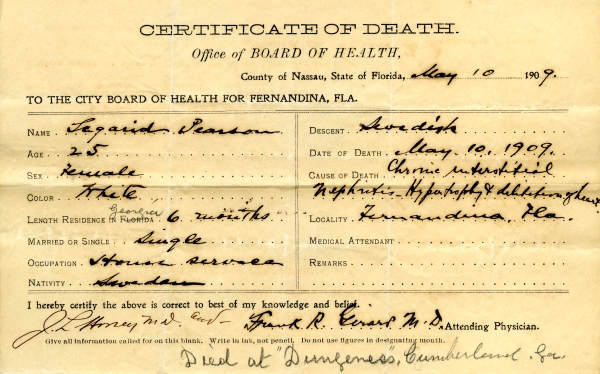 CERTIFICATE OF DEATH.
Office of BOARD OF HEALTH,
County of Nassau, State of Florida, May 10 1909.
TO THE CITY BOARD OF HEALTH FOR FERNANDINA, FLA.
NAME Segarid Pearson
AGE 25
SEX Female
COLOR White
Georgia
LENGTH RESIDENCE IN FLORIDA 6 months
MARRIED OR SINGLE Single
OCCUPATION House
NATIVITY Sweden
DESCENT Swedish
DATE OF DEATH May 10, 1909.
CAUSE OF DEATH Chronic interstitial
Nephritis - Hypertrophy & dilitation of heart
LOCALITY Fernandina, Fla.
MEDICAL ATTENDANT
REMARKS
I hereby certify the above is correct to best of my knowledge and belief.
J. L. M.D. and Frank R. Gerard M.D., Attending Physician.
Give all information called for on this blank. Write in ink, not pencil. Do not use figures in designating month.
Died at "Dungeness", Cumberland, Ga.